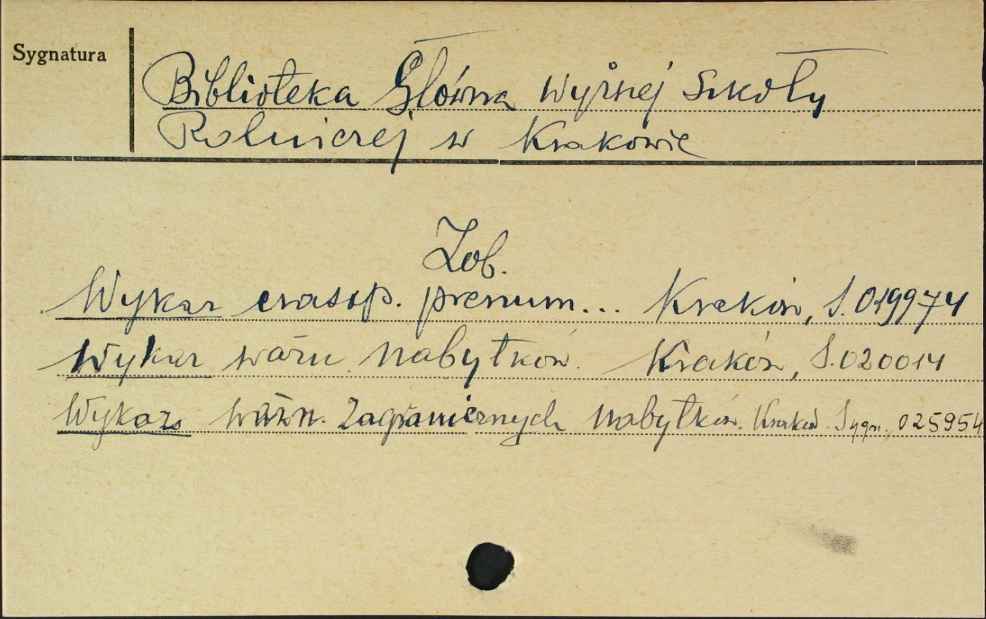 Sygnatura
Biblioteka Główna Wyższej Szkoły
Rolniczej w Krakowie
Zob.
Wykaz czasop. prenum... Kraków, S. 019974
Wykaz ważn. nabytków. Kraków, S. 020014
Wykaz ważn. zagranicznych nabytków. Kraków. Sygn. 025954